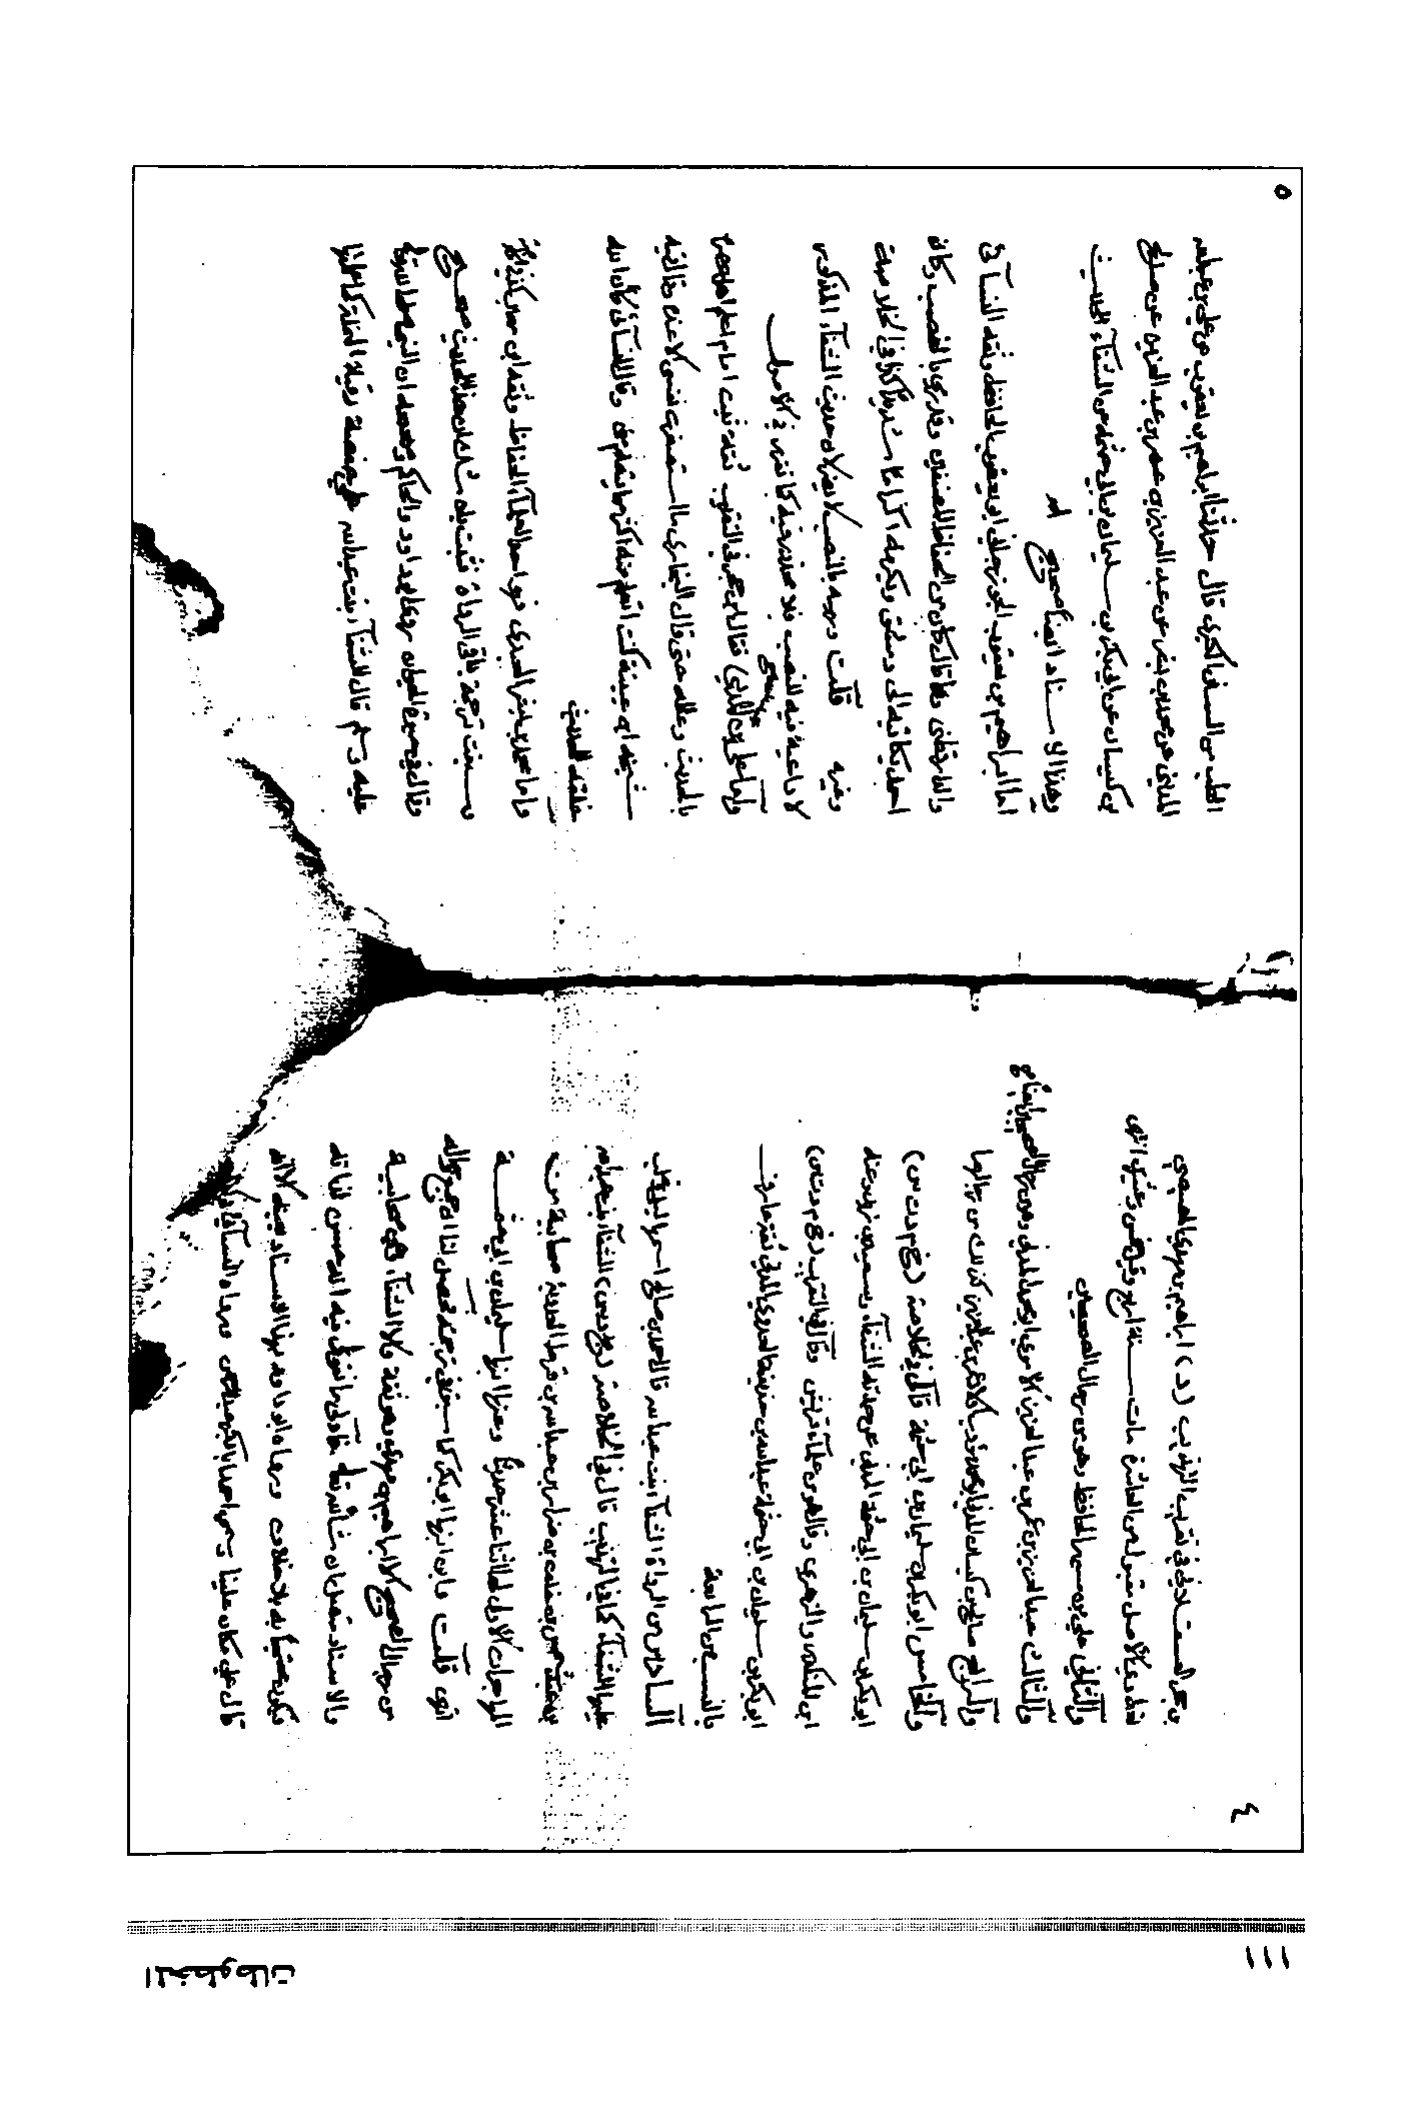 ٤
بن حجر العسقلاني في تقريب التهذيب (د) ابراهيم بن مهدي المصيصي
بغدادي الاصل مقبول من العاشرة مات سنة اربع وقيل خمس وعشرين انتهى
والثاني علي بن مسهر الحافظ وهو من رجال الصحيحين
والثالث عبدالعزيز بن عمر بن عبدالعزيز الاموي ابو محمد المدني وهو من رجال الصحيحين ايضا
والرابع صالح بن كيسان المدني ابو محمد كذلك من رجالهما
والخامس ابو بكر بن سليمان بن ابي حثمة قال في الخلاصة (خ م د ت س)
ابو بكر بن سليمان بن ابي حثمة المدني عن جدته الشفآء وسعيد بن زيد وعنه
ابن المنكدر والزهري وقال الزهري من علمآء قريش وقال في التقريب (خ م د ت س)
ابو بكر بن سليمان بن ابي حثمة عبدالله بن حذيفة العدوي المدني ثقة عارف
بالنسب من الرابعة
السادس من الرواة الشفآء بنت عبدالله قال احمد بن صالح اسمها ليلى وغلب
عليها الشفآء كما في التهذيب قال في الخلاصة (بخ د س) الشفآء بنت عبدالله
بن عبد شمس بن خلف بن عبدالله بن قرط العدوية صحابية من
المهاجرات الاول لها اثنا عشر حديثا وعنها ابنها سليمان بن ابي حثمة
انتهى قلت وابن ابنها ابو بكر كما سبق في ترجمته فحصل لنا ان جميع رجاله
من رجال الصحيح الا ابراهيم بن مهدي وهو ثقة والا الشفآء وهي صحابية
والاسناد متصل فأقل ما نقول فيه انه حسن لذاته
فيكون محتجا به بلا خلاف ورواه ابو داود بهذا الاسناد بعينه الا انه
قال علي مكان علينا ورواه النسآئي
٥
الطب من السنن الكبرى قال حدثنا ابراهيم بن يعقوب عن علي بن عبدالله
المديني عن محمد بن بشر عن عبدالعزيز بن عمر بن عبدالعزيز عن صالح
بن كيسان عن ابي بكر بن سليمان بن ابي حثمة عن الشفآء الحديث
وهذا الاسناد ايضا صحيح
اما ابراهيم بن يعقوب الجوزجاني الحافظ وثقه النسآئي
والدارقطني وقال كان من الحفاظ المصنفين وقد رمي بالنصب وكان
احمد يكاتبه الى دمشق ويكرمه اكراما شديدا كذا في الخلاصة
وغيره قلت ورميه بالنصب لا يضر لان حديث الشفآء المذكور
لا داعية فيه للنصب فلا محذور فيه كما تقرر في الاصول
واما علي بن المديني فقال ابن حجر في التقريب ثقة ثبت امام اعلم اهل عصره
بالحديث وعلله حتى قال البخاري ما استصغرت نفسي الا عنده وقال فيه
شيخه ابن عيينة كنت اتعلم منه اكثر مما يتعلمه مني وقال النسآئي كأن الله
خلقه للحديث
واما محمد بن بشر العبدي فهو احد العلمآء الحفاظ وثقه ابن معين
وسبقت ترجمة باقي الرواة فثبت بذلك ان هذا الحديث صحيح
وقال في حيوة الحيوان روى ابو داود والحاكم وصححه ان النبي صلى الله
عليه وسلم قال للشفآء بنت عبدالله علمي حفصة رقية النملة كما علمتها
المخطوطات
١١١